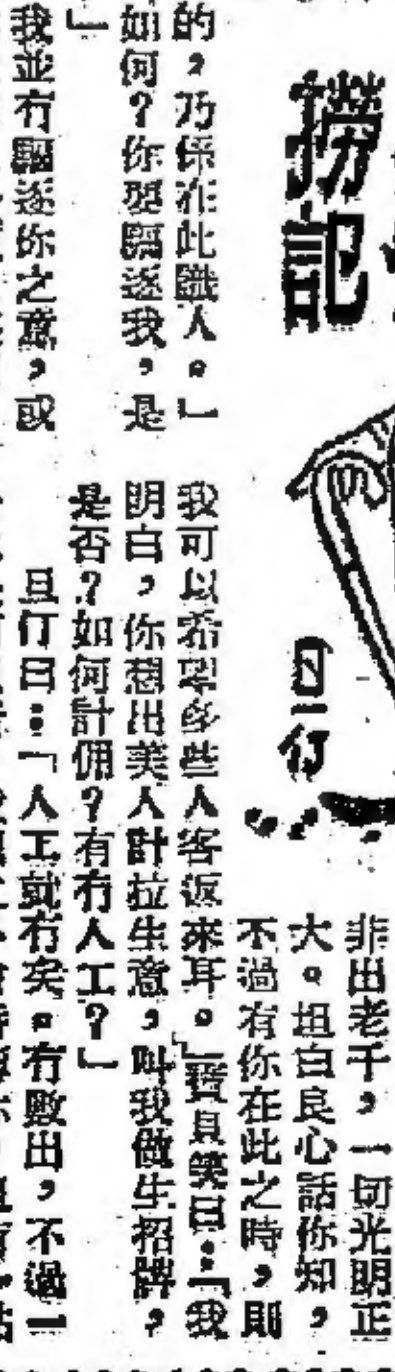 撈記
的，乃係在此識人。」
如何？你要驅逐我，是
」
我並冇驅逐你之意，或
非出老千，一切光明正
大。坦白良心話你知，
不過有你在此之時，則
我可以希望多些人客返來耳。」寶貝笑曰：「我
明白，你想出美人計拉生意，叫我做生招牌，
是否？如何計佣？有冇人工？」
旦仃曰：「人工就冇矣。冇數出，不過一